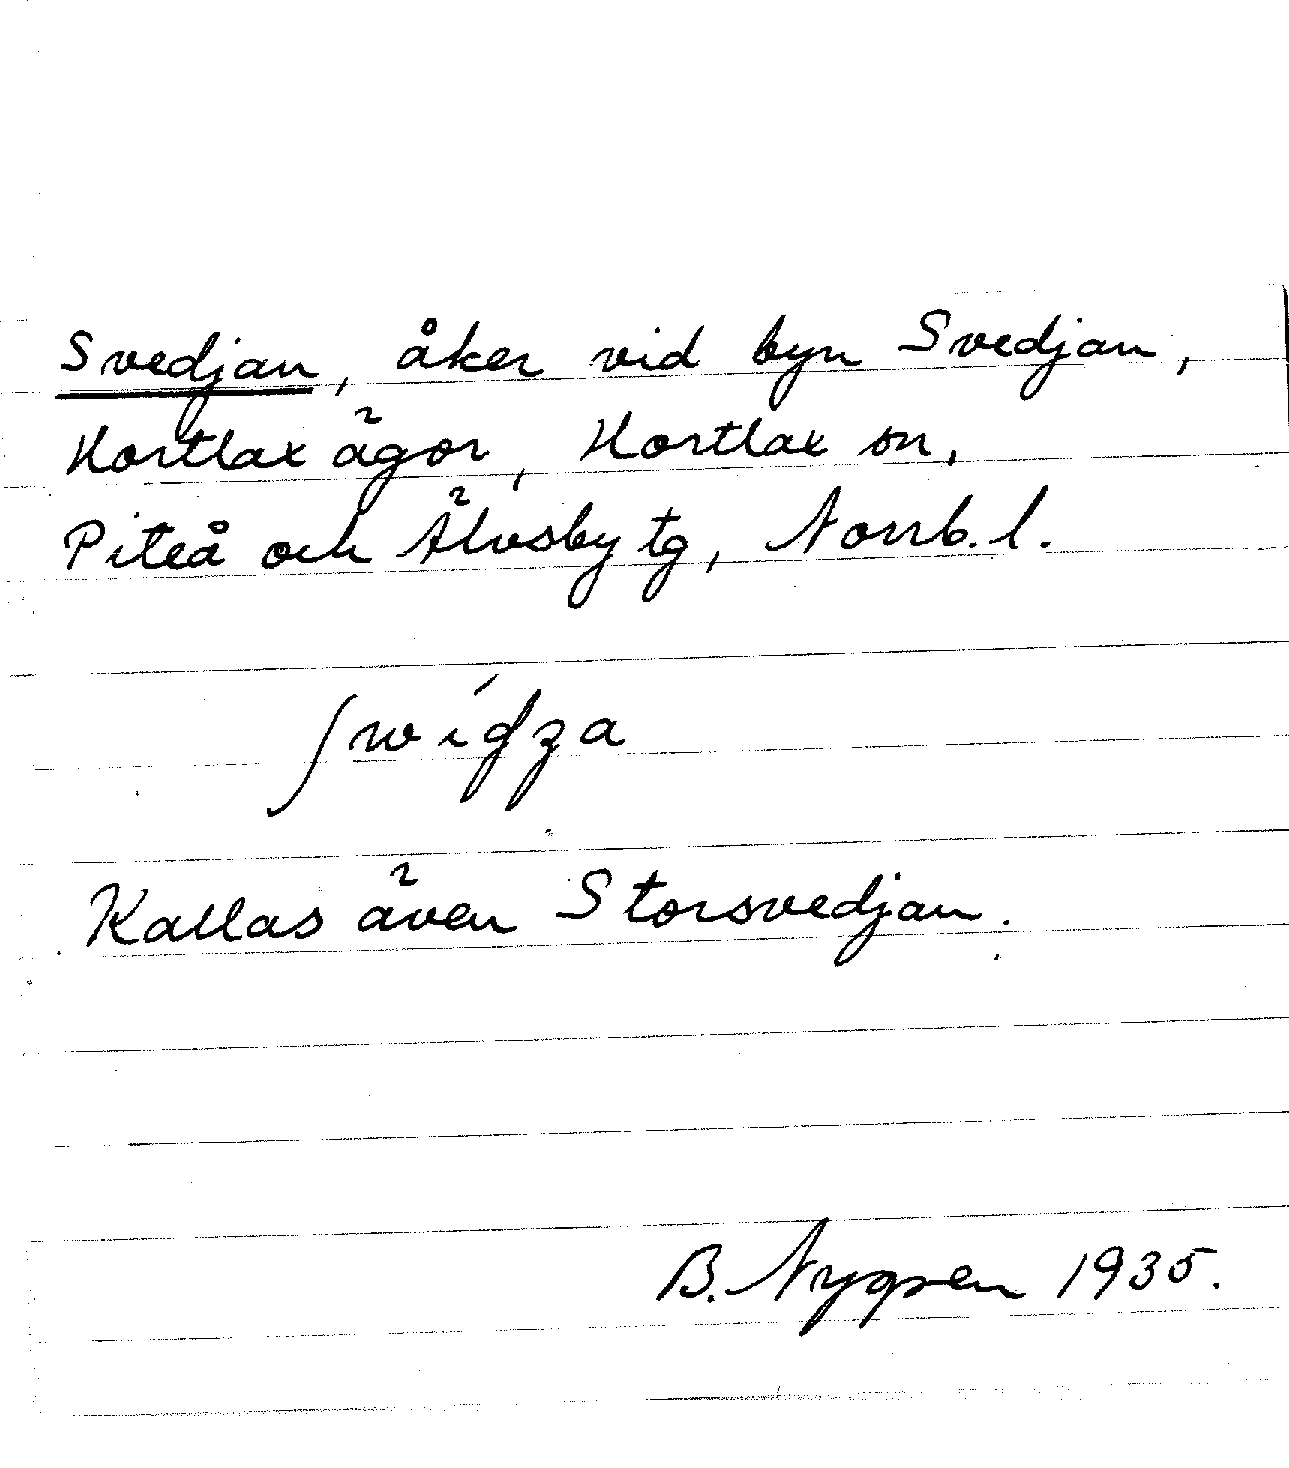 Svedjan, åker vid byn Svedjan,
Hortlax ägor, Hortlax sn,
Piteå och Älvsby tg, Norrb. l.
Kallas även Storsvedjan.
B. Nygren 1935.